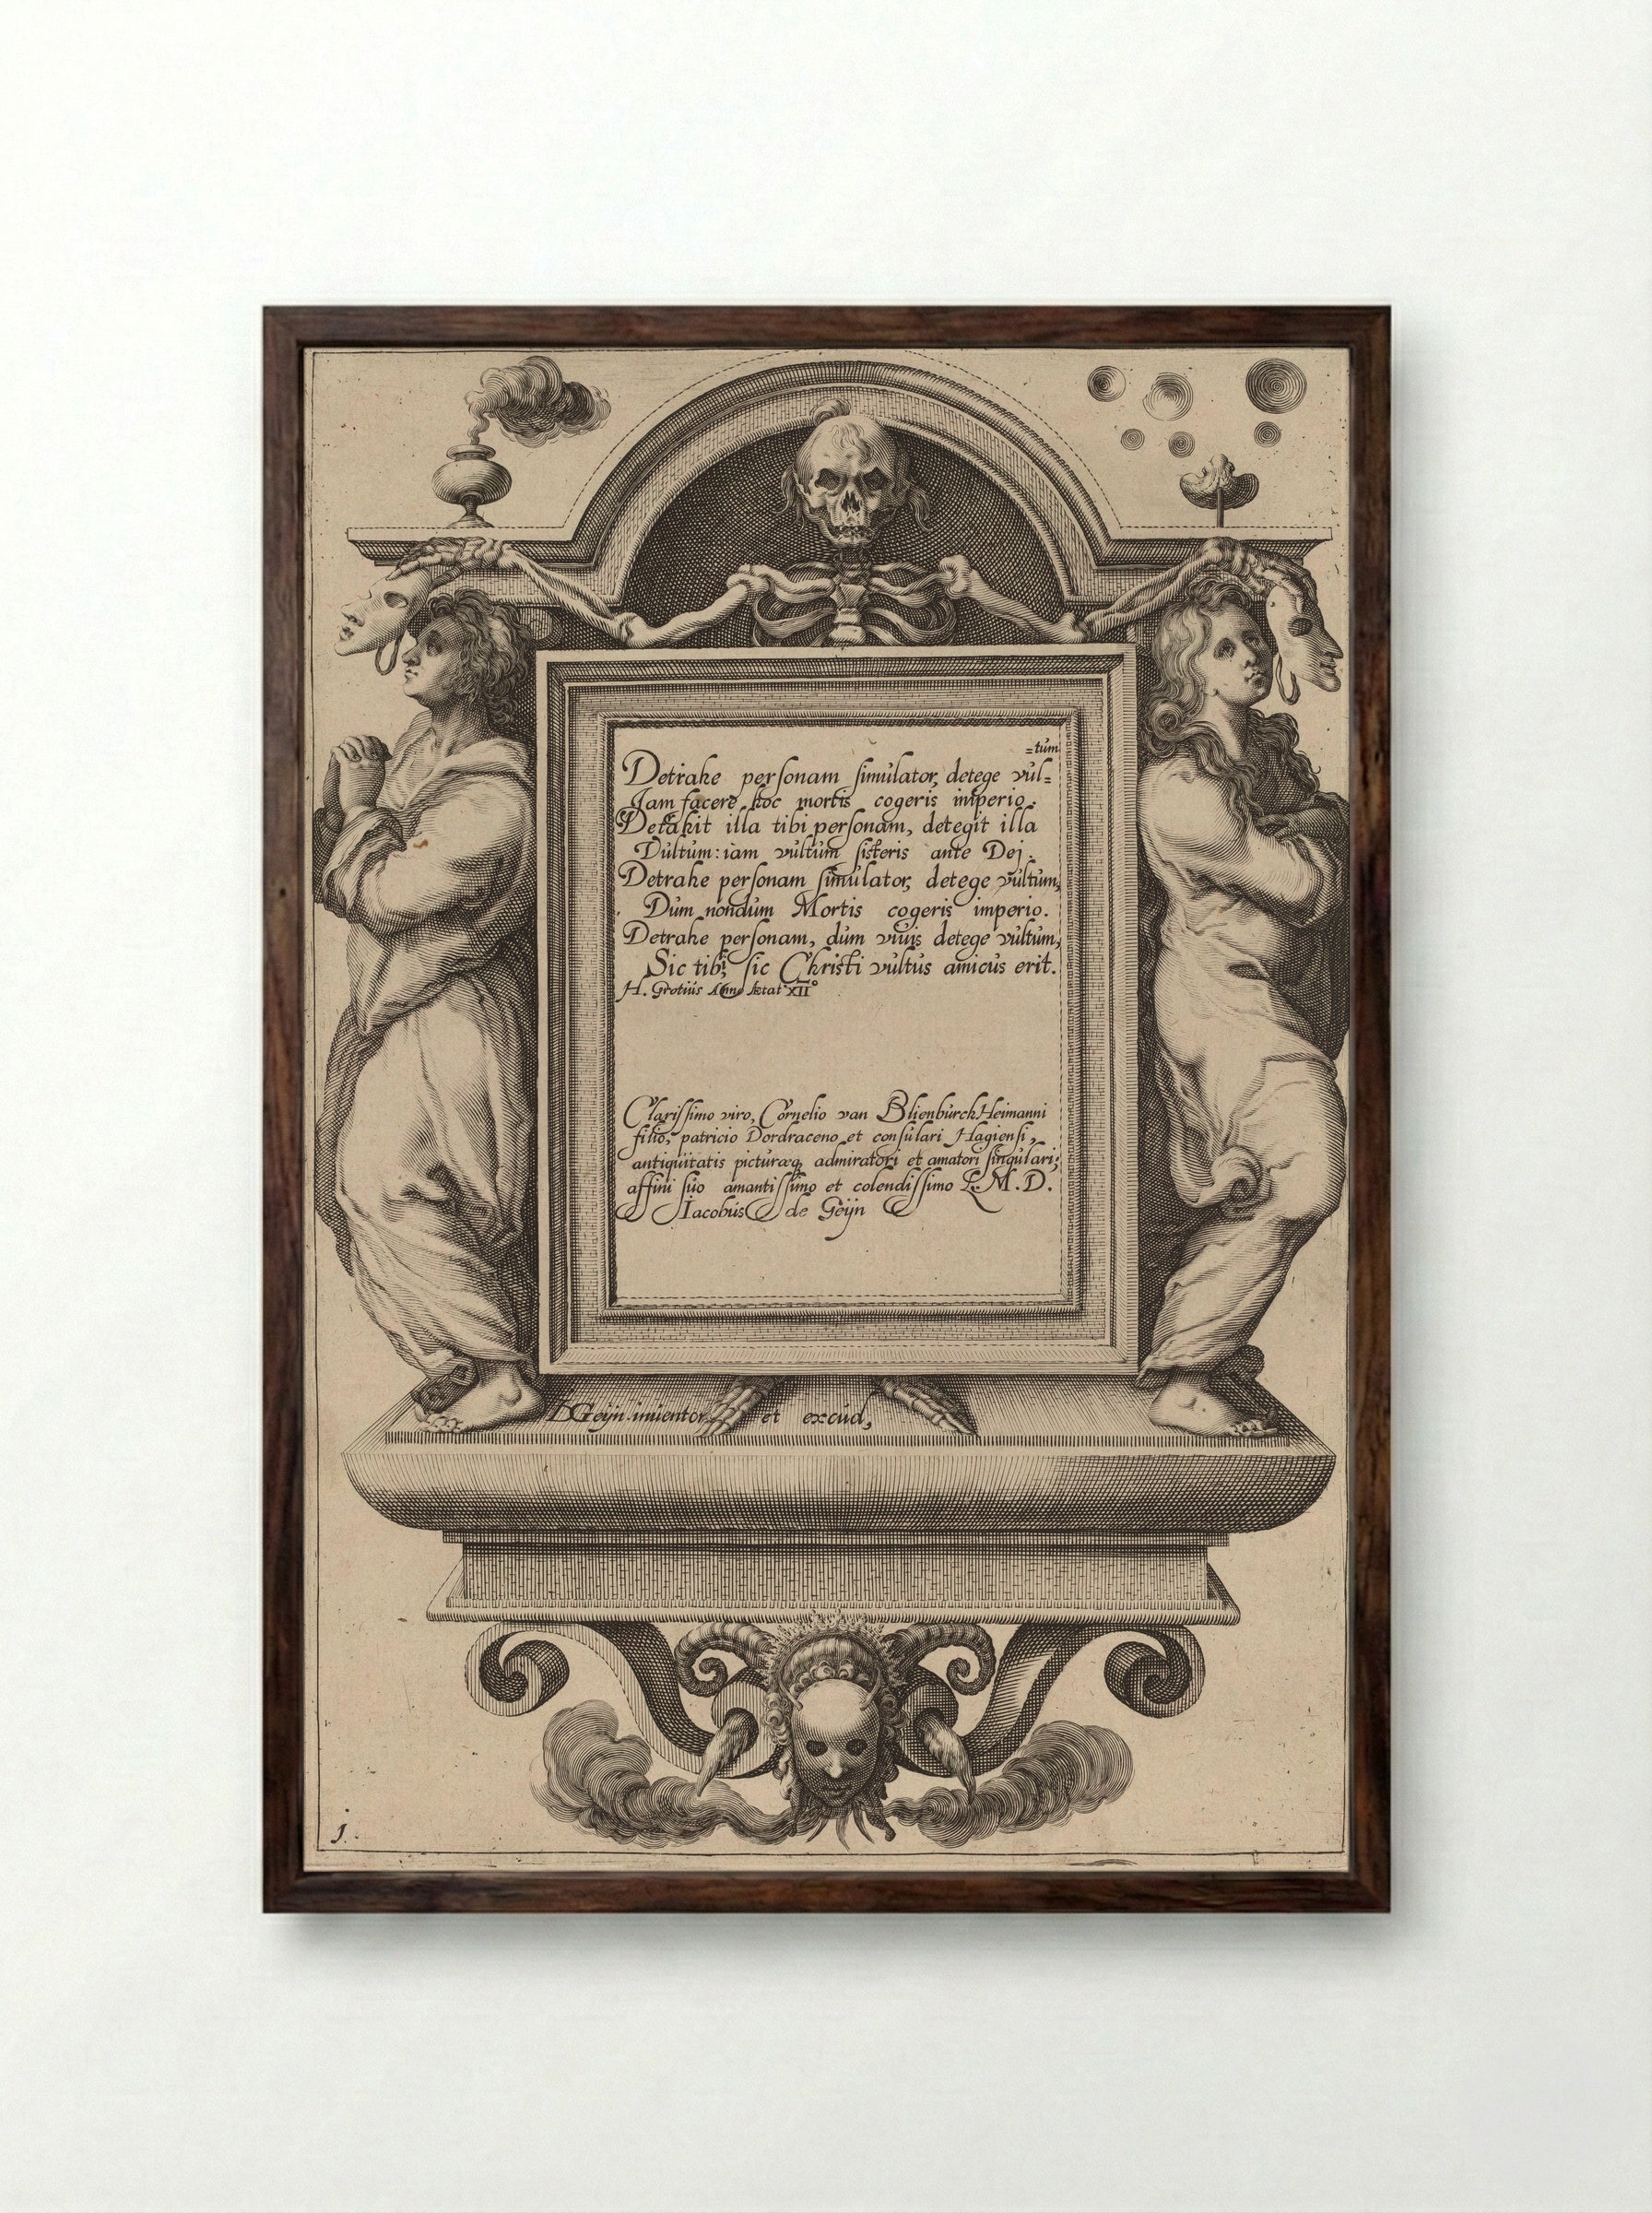 Detrahe personam simulator, detege vul=
=tum
Jam facere hoc mortis cogeris imperio.
Detrahit illa tibi personam, detegit illa
Vultum: iam vultum sisteris ante Dei.
Detrahe personam simulator, detege vultum,
Dum nondum Mortis cogeris imperio.
Detrahe personam, dum viuis detege vultum,
Sic tibi, sic Christi vultus amicus erit.
H. Grotius Anno Ætat XII°
Clarissimo viro, Cornelio van Blienburck Heimanni
filio, patricio Dordraceno et consulari Hagiensi,
antiquitatis picturæq, admiratori et amatori singulari;
affini suo amantissimo et colendissimo L.M.D.
Iacobus de Geijn
DGeijn inuentor et excud,
1.